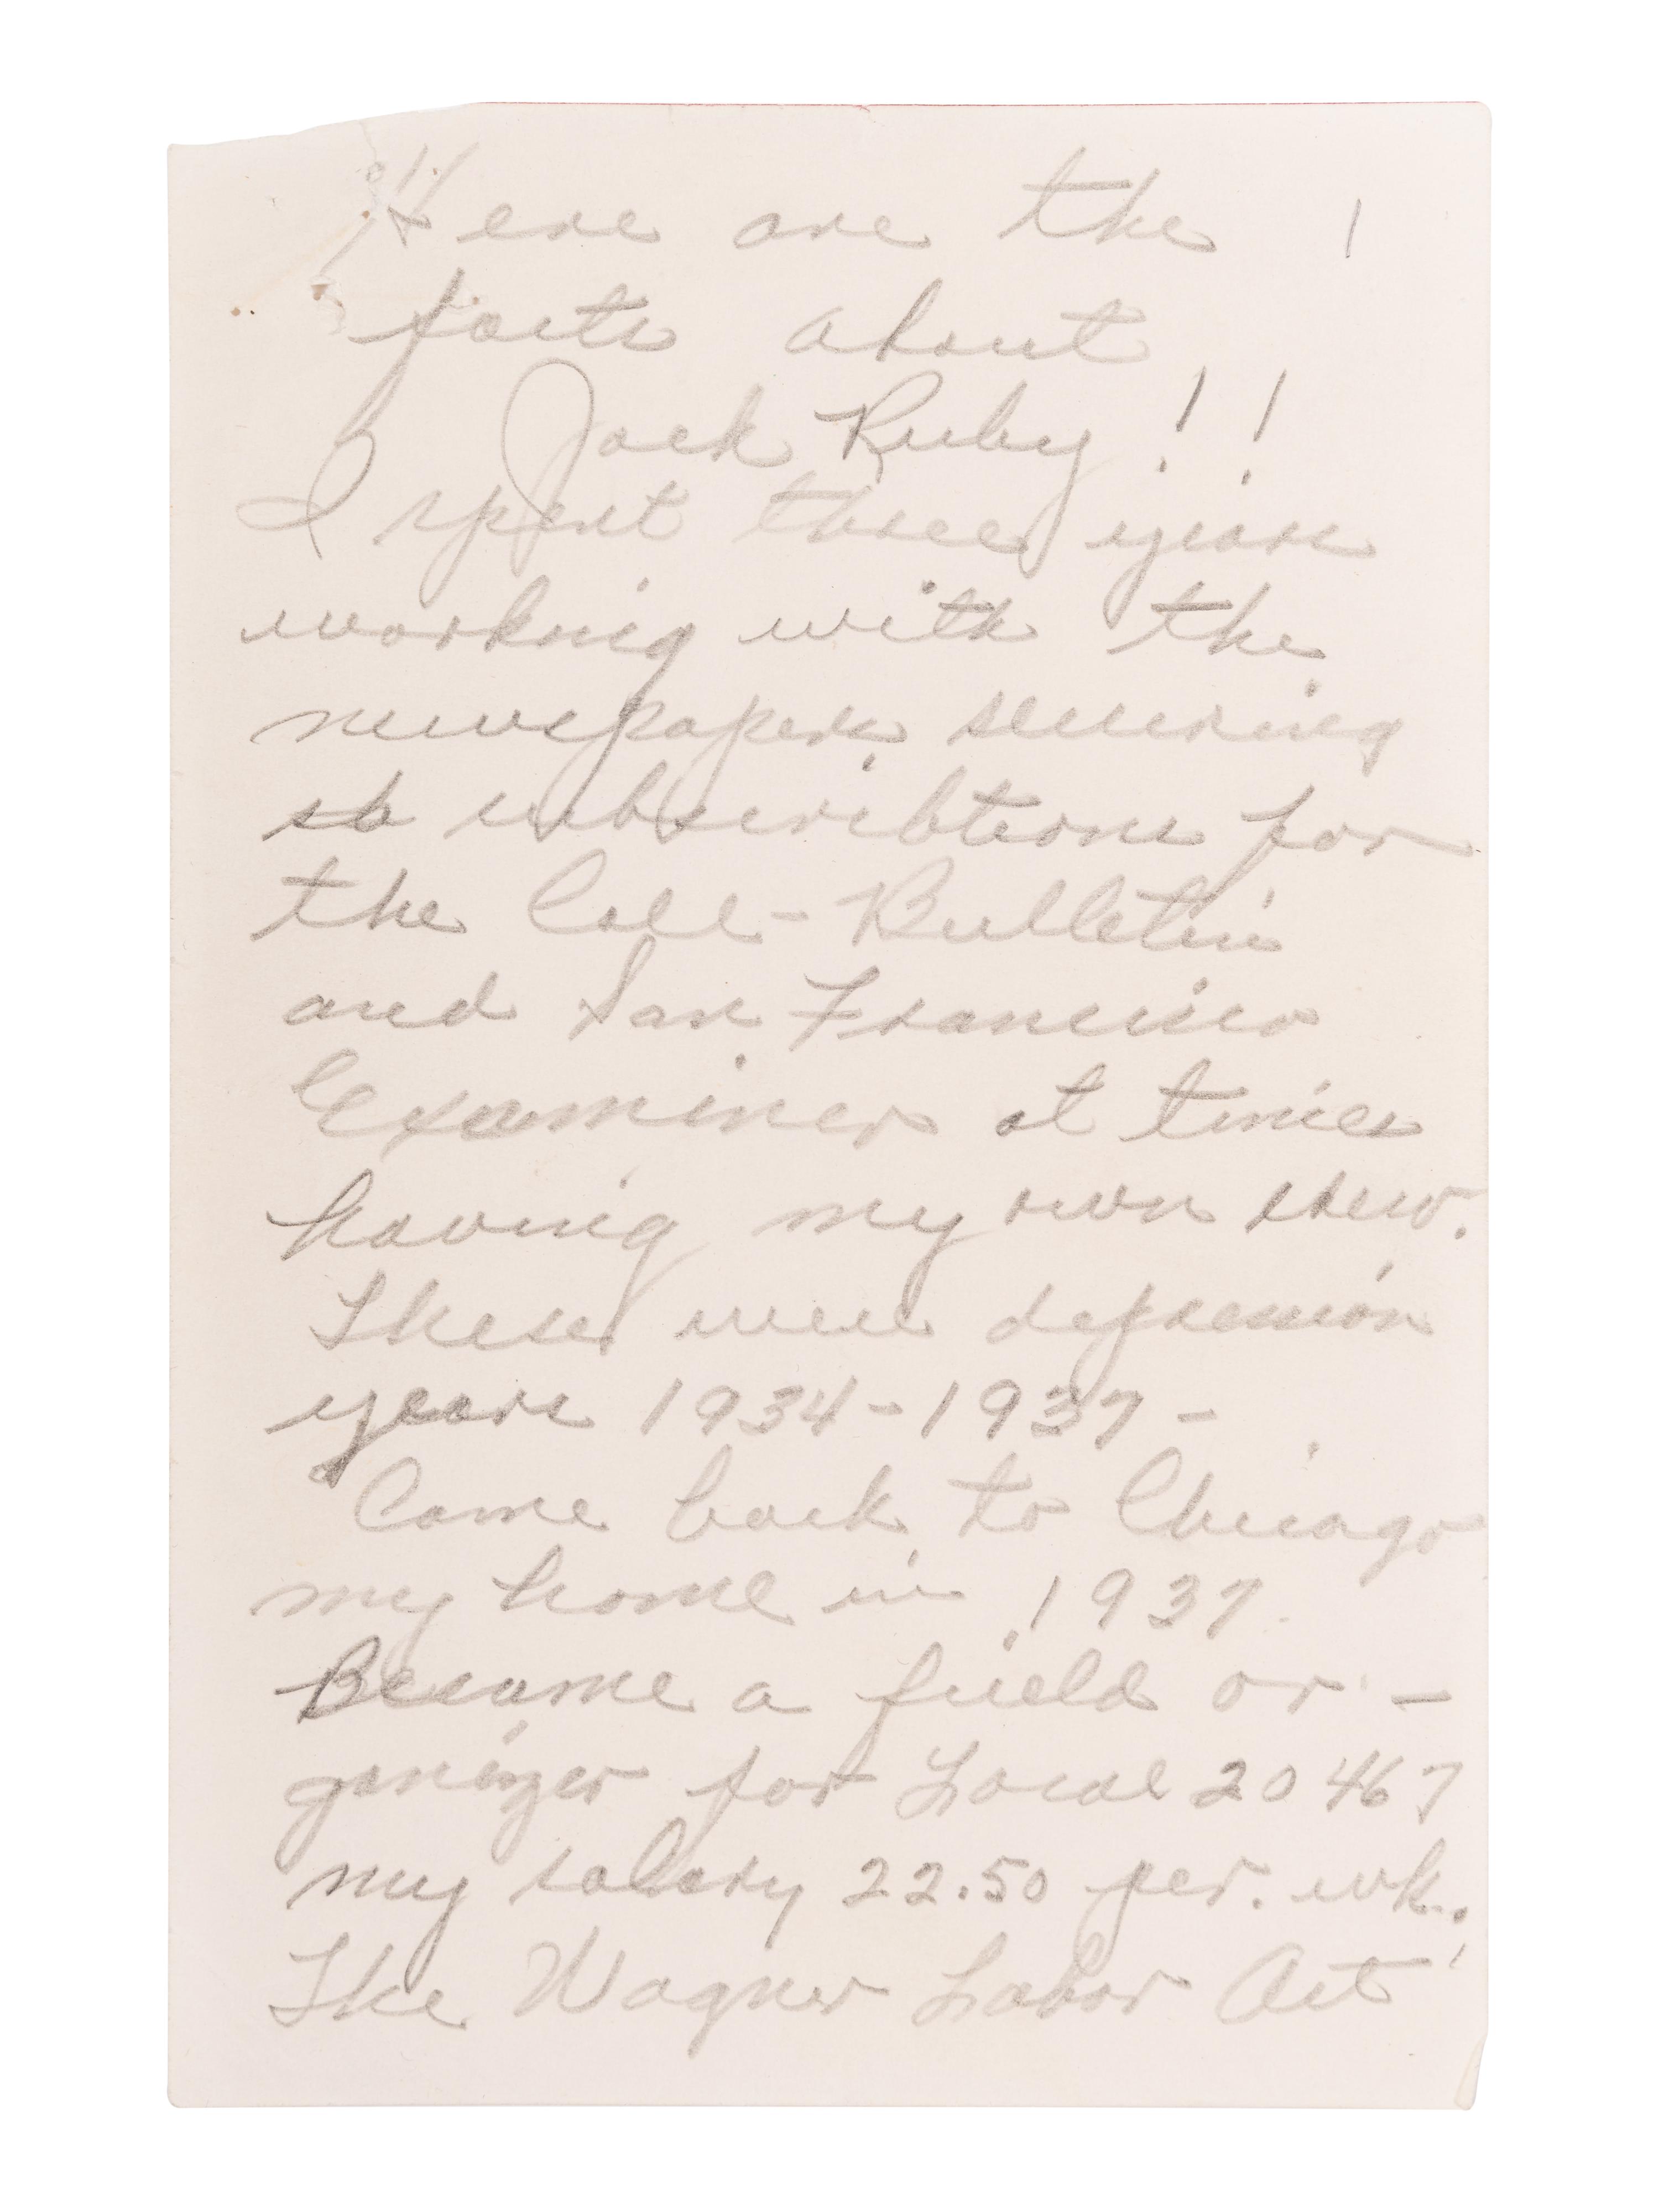 Here are the 1
facts about
Jack Ruby!!
I spent three years
working with the
newspapers securing
sb subscribtions for
the Call-Bulletin
and San Francisco
Examiner at times
having my own crew.
These were depression
years 1934-1937-
Came back to Chicago
my home in 1937.
Became a field or-
ganizer for Local 20467
my salary 22.50 per. wk.
The Wagner Labor Act